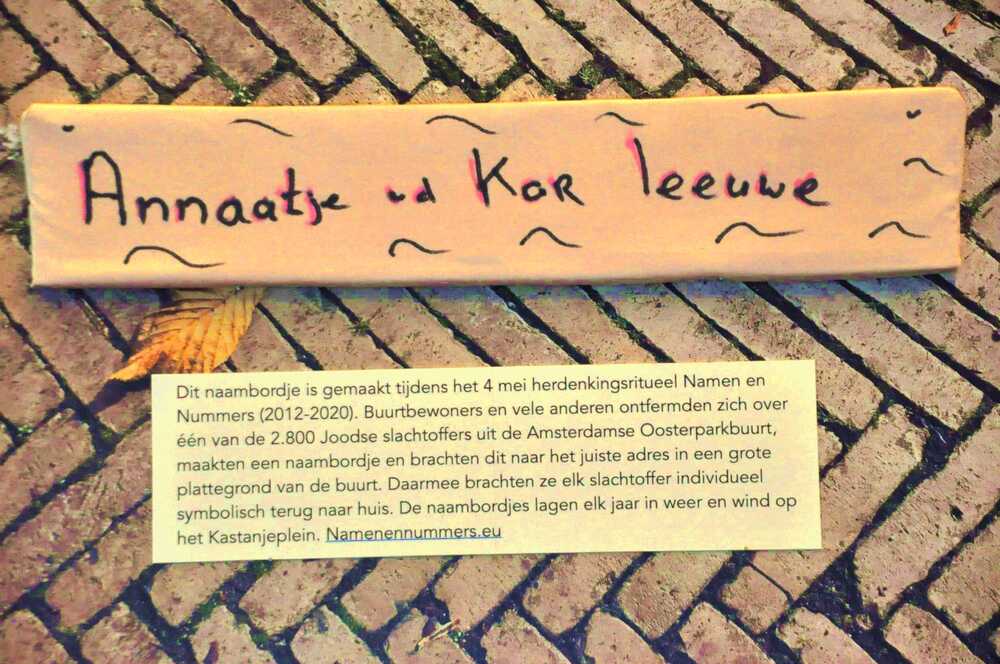 Annaatje vd Kar leeuwe
Dit naambordje is gemaakt tijdens het 4 mei herdenkingsritueel Namen en
Nummers (2012-2020). Buurtbewoners en vele anderen ontfermden zich over
één van de 2.800 Joodse slachtoffers uit de Amsterdamse Oosterparkbuurt,
maakten een naambordje en brachten dit naar het juiste adres in een grote
plattegrond van de buurt. Daarmee brachten ze elk slachtoffer individueel
symbolisch terug naar huis. De naambordjes lagen elk jaar in weer en wind op
het Kastanjeplein. Namenennummers.eu